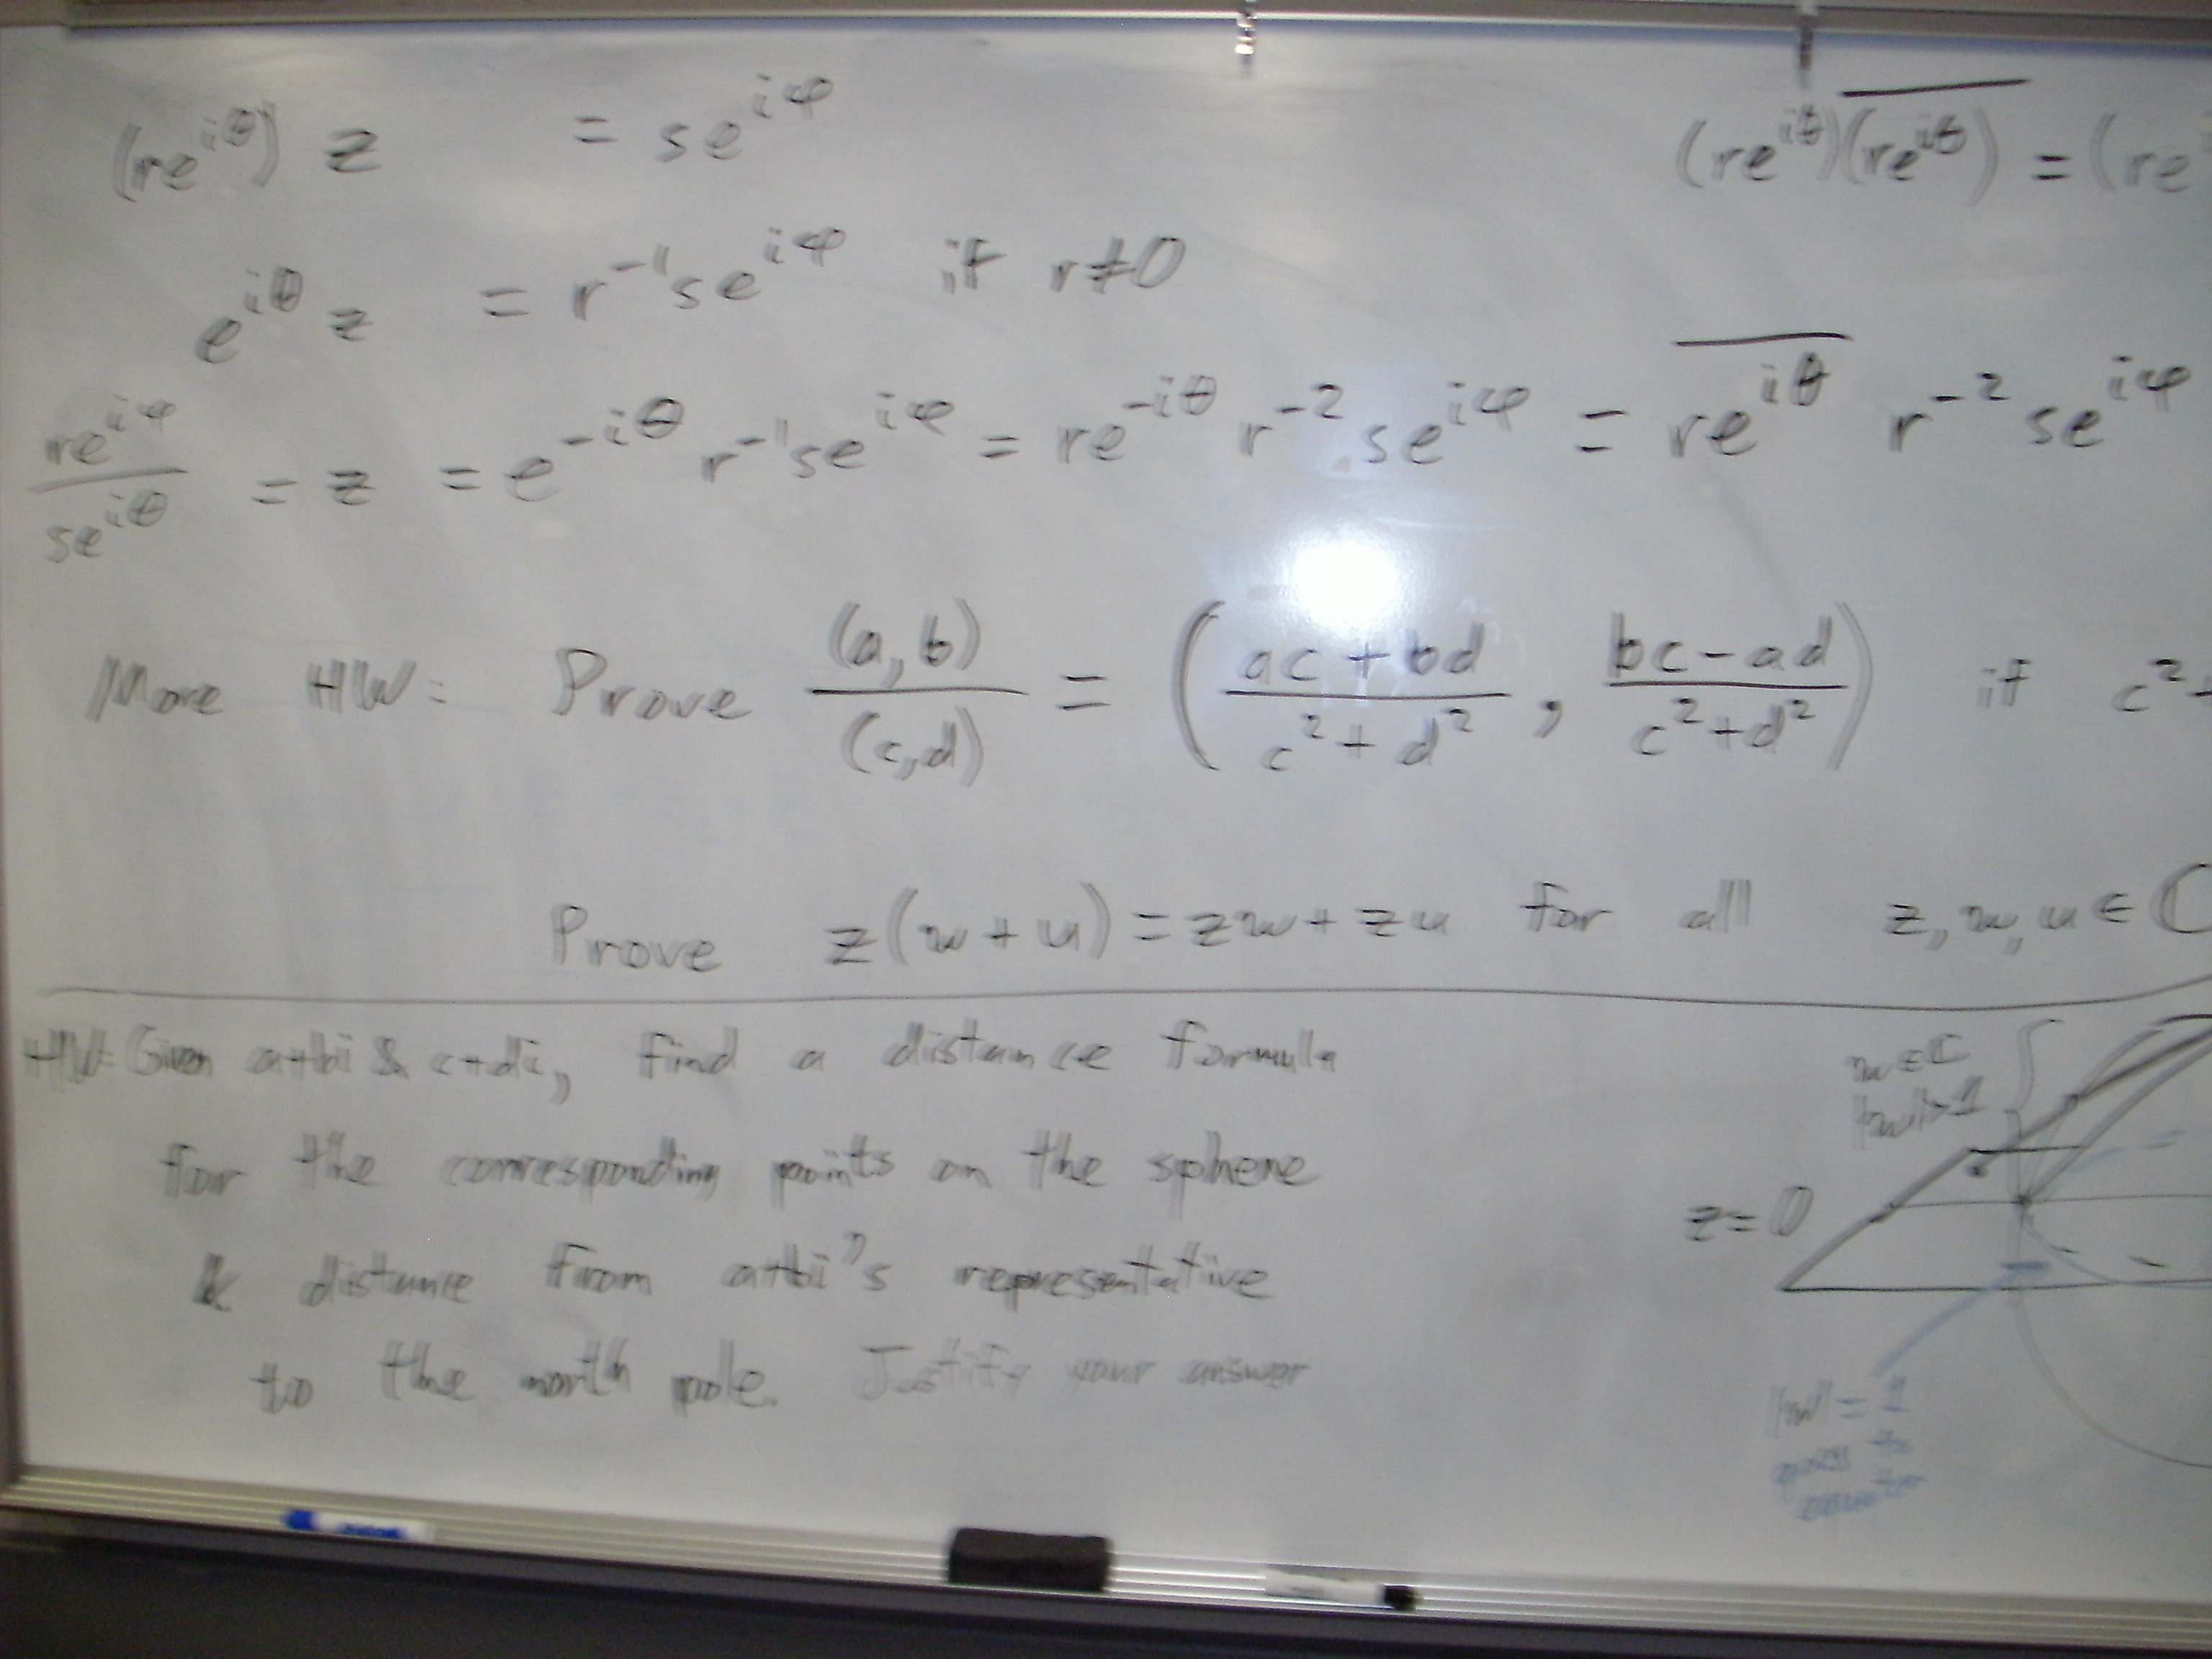 (re^{iθ}) z = se^{iφ}
(re^{iθ})\overline{(re^{iθ})} = (re
e^{iθ} z = r^{-1}se^{iφ} if r≠0
\frac{re^{iφ}}{se^{iθ}} = z = e^{-iθ} r^{-1}se^{iφ} = re^{-iθ} r^{-2} se^{iφ} = \overline{re^{iθ}} r^{-2} se^{iφ}
More HW: Prove \frac{(a,b)}{(c,d)} = \left(\frac{ac+bd}{c^2+d^2}, \frac{bc-ad}{c^2+d^2}\right) if c^2+
Prove z(w+u)=zw+zu for all z,w,u∈ℂ
HW: Given a+bi & c+di, find a distance formula
for the corresponding points on the sphere
& distance from a+bi's representative
to the north pole. Justify your answer
w∈ℂ
|w|>1
z=0
|w|=1